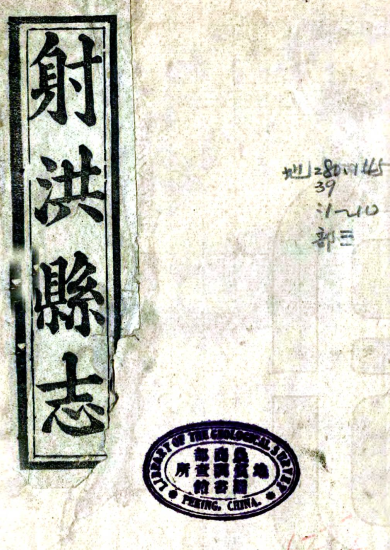 射洪縣志
地280.145
39
:1~10
部三
LIBRARY OF THE GEOLOGICAL SURVEY
PEKING, CHINA.